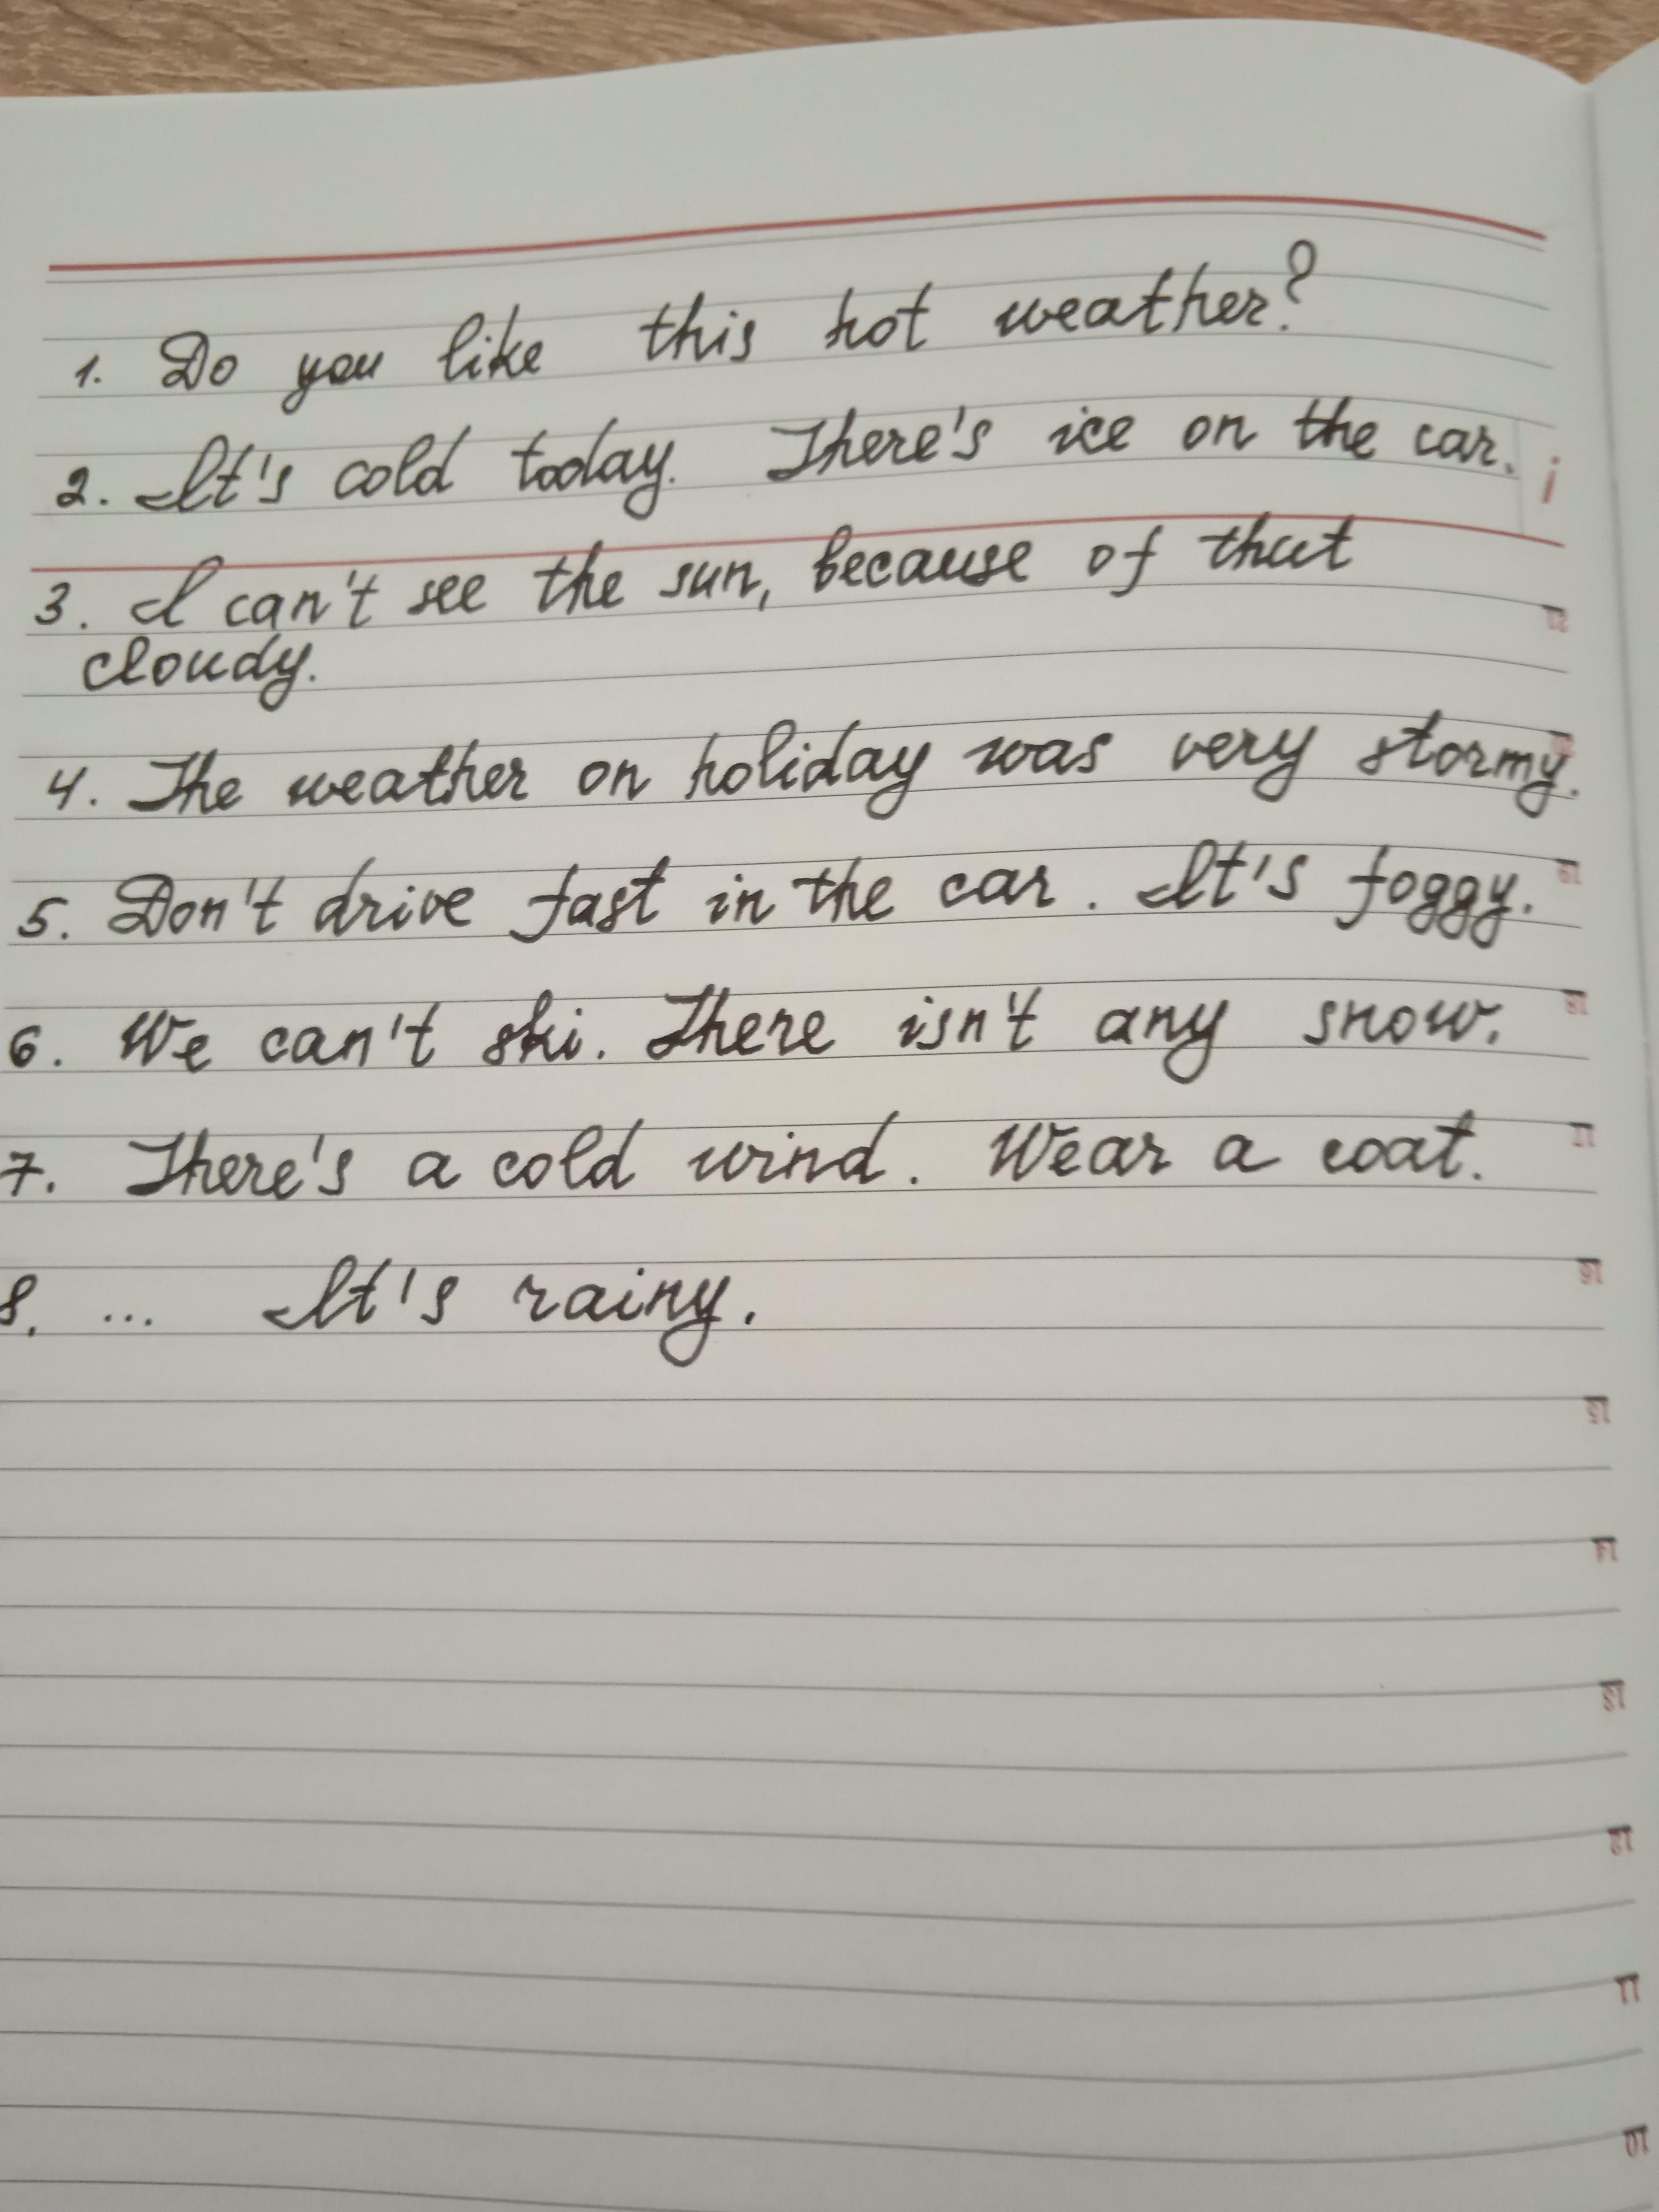 1. Do you like this hot weather?
2. It's cold today. There's ice on the car.
i
3. I can't see the sun, because of that
21
cloudy.
4. The weather on holiday was very stormy.
20
5. Don't drive fast in the car. It's foggy.
19
6. We can't ski. There isn't any snow.
18
7. There's a cold wind. Wear a coat.
17
8. ... It's rainy.
16
15
14
13
12
11
10